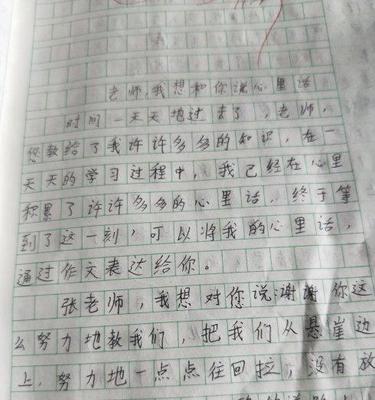 老师,我想和你说心里话
时间一天天地过去了,老师,
您教给了我许许多多的知识,在一
天天的学习过程中,我已经在心里
积累了许许多多的心里话,终于等
到了这一刻,可以将我的心里话,
通过作文表达给你。
张老师,我想对您说:谢谢你这
么努力地教我们,把我们从悬崖边
上,努力地一点点往回拉,没有放
的道路上